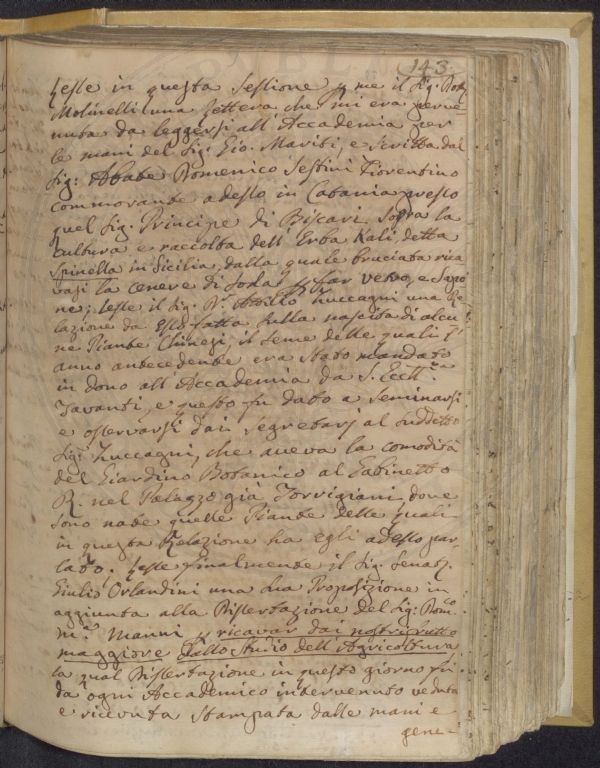 143
Lesse in questa Sessione p me il Sig. Dott.
Molinelli una Lettera che mi era perve=
nuta da leggersi all'Accademia per
le mani del Sig: Gio. Mariti, e scritta dal
Sig: Abate Domenico Sestini Fiorentino
commorante adesso in Catania presso
quel Sig. Principe di Biscari. Sopra la
Cultura e raccolta dell'Erba Kali, detta
Spinella in Sicilia, dalla quale bruciata rica
vasi la cenere di Soda p far vetro, e Sapo
ne; lesse il Sig. D.r Attilio Zuccagni una Re
lazione da esso fatta sulla nascita di alcu
ne Piante Chinesi, il seme delle quali l'
anno antecedente era stato mandato
in dono all'Accademia da S. Ecc.za
Tavanti, e questo fu dato a seminarsi
e osservarsi dai Segretarj al suddetto
Sig: Zuccagni, che aveva la comodità
del Giardino Botanico al Gabinetto
R. nel Palazzo già Torrigiani, dove
sono nate quelle Piante delle quali
in questa Relazione ha egli adesso par
lato; Lesse finalmente il Sig. Senat.
Giulio Orlandini una sua Proposizione in
aggiunta alla Dissertazione del Sig: Dom.co
M.a Manni p ricavar dai nostri frutto
maggiore dallo Studio dell'Agricoltura
la qual Dissertazione in questo giorno fu
da ogni Accademico intervenuto veduta
e ricevuta stampata dalle mani e
gene=